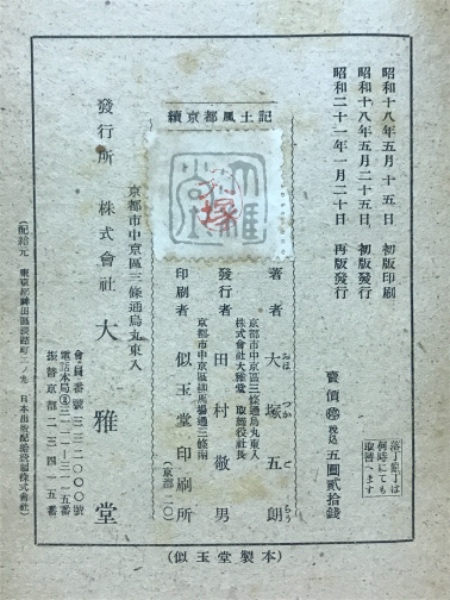 昭和十八年五月十五日 初版印刷
昭和十八年五月二十五日 初版發行
昭和二十一年一月二十日 再版發行
賣價 税込 五圓貳拾錢
落丁亂丁は
何時にても
取替へます
續京都風土記
大塚
著者 大塚五朗
おほ つか ご らう
京都市中京區三條通烏丸東入
株式會社大雅堂 取締役社長
發行者 田村敬男
京都市中京區柳馬場通三條南
印刷者 似玉堂印刷所
(京都 二〇)
京都市中京區三條通烏丸東入
發行所 株式會社 大雅堂
會員番號 二三二〇〇〇號
振替京都 二三四一五番
(配給元 東京都神田區淡路町二ノ九 日本出版配給株式會社)
(似玉堂製本)